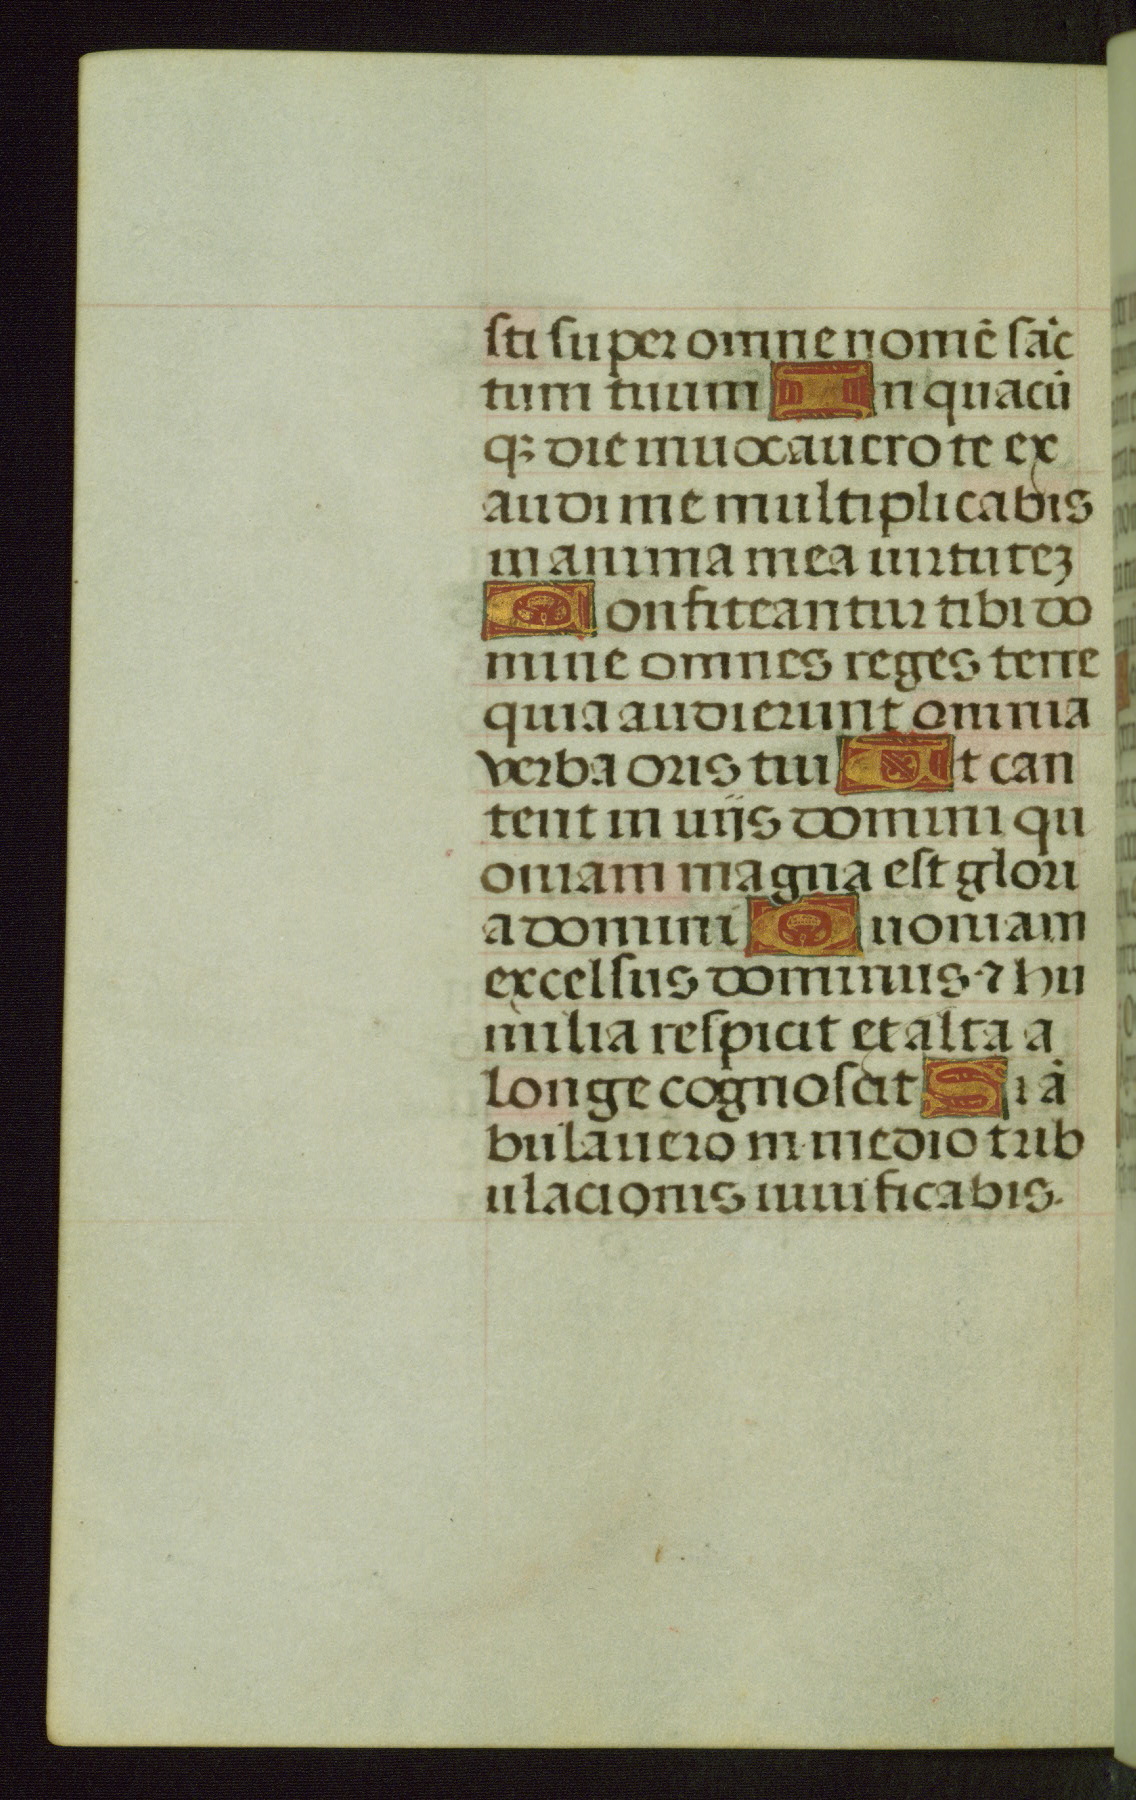 sti super omne nomē sāc
tum tuum In quacū
qꝫ die inuocauero te ex
audi me multiplicabis
in anima mea uirtuteꝫ
Confiteantur tibi do
mine omnes reges terre
quia audierunt omnia
verba oris tui Et can
tent in uijs domini qu
oniam magna est glori
a domini Quoniam
excelsus dominus ⁊ hu
milia respicit et alta a
longe cognoscit Si ā
bulauero in medio trib
ulacionis uiuificabis.